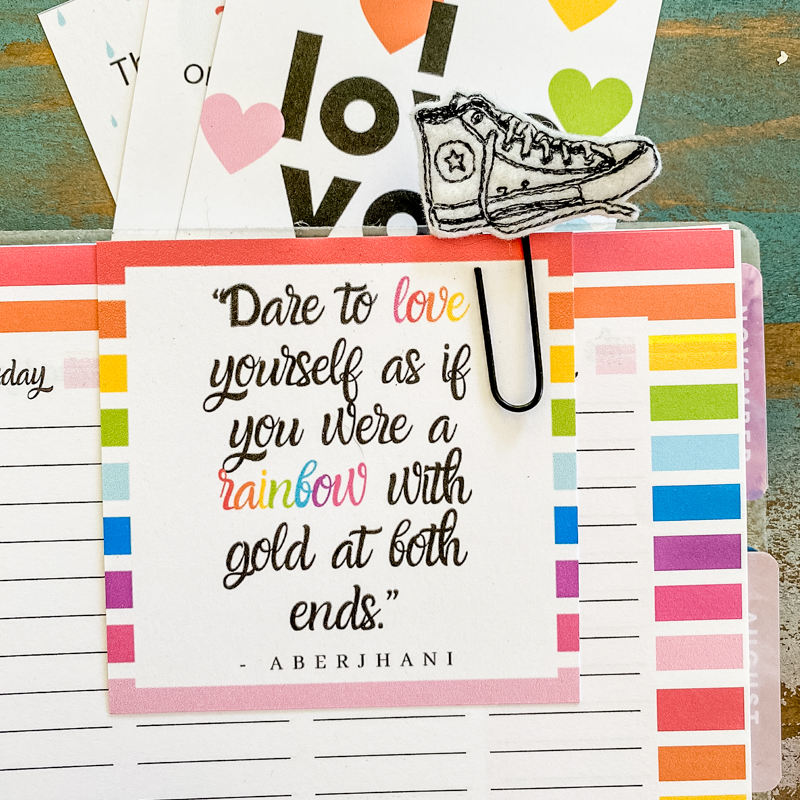 lo
“Dare to love
yourself as if
you were a
rainbow with
gold at both
ends.”
- ABERJHANI
NOVEMBER
AUGUST